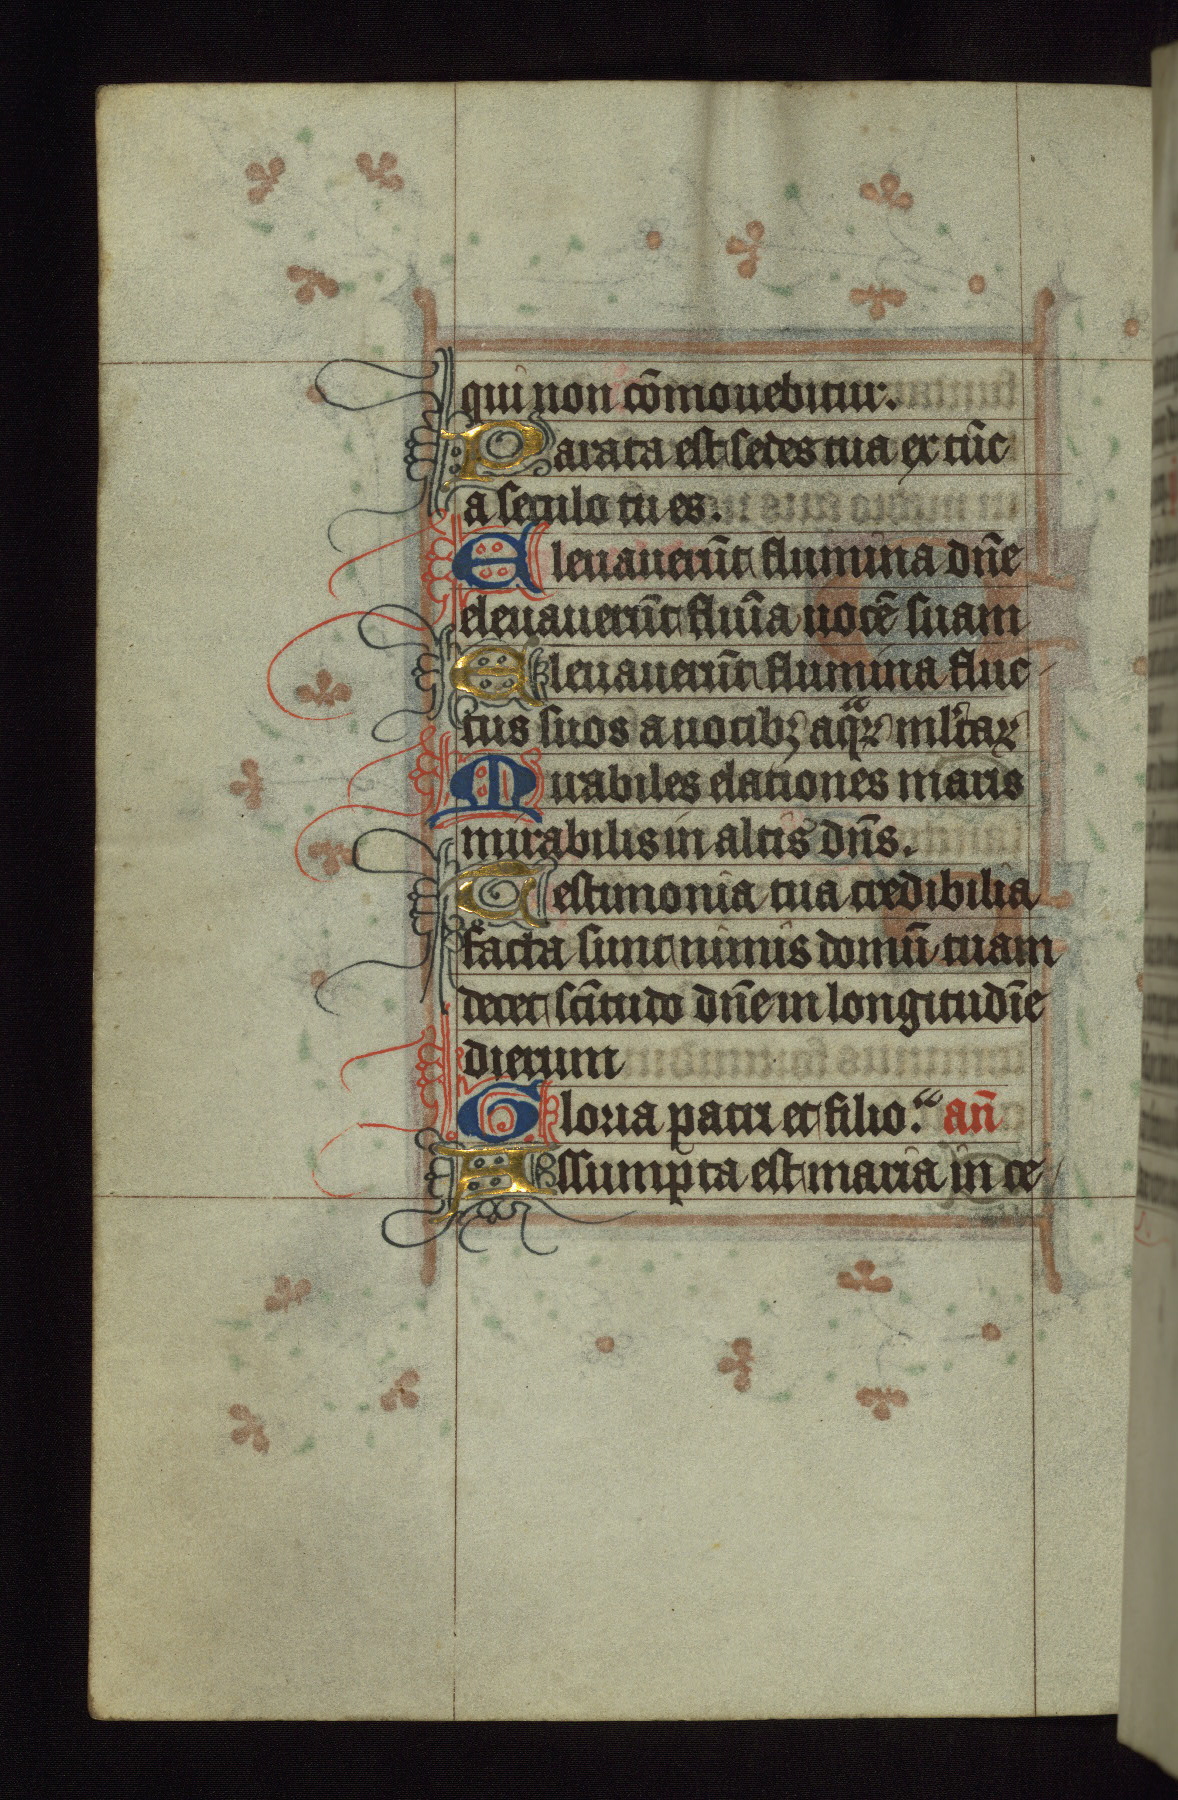 qui non cōmouebitur.
Parata est sedes tua ex tūc
a seculo tu es.
Eleuauerūt flumina dn̄e
eleuauerūt flūīa uocē suam
Eleuauerūt flumina fluc
tus suos a uocibꝫ aqͣꝝ ml̓taꝝ
Mirabiles elationes maris
mirabilis in altis dn̄s.
Testimonia tua credibilia
facta sunt nimis domū tuam
decet sc̄itudo dn̄e in longitudīe
dierum
Gloria patri et filio. an̄
Assumpta est maria in ce